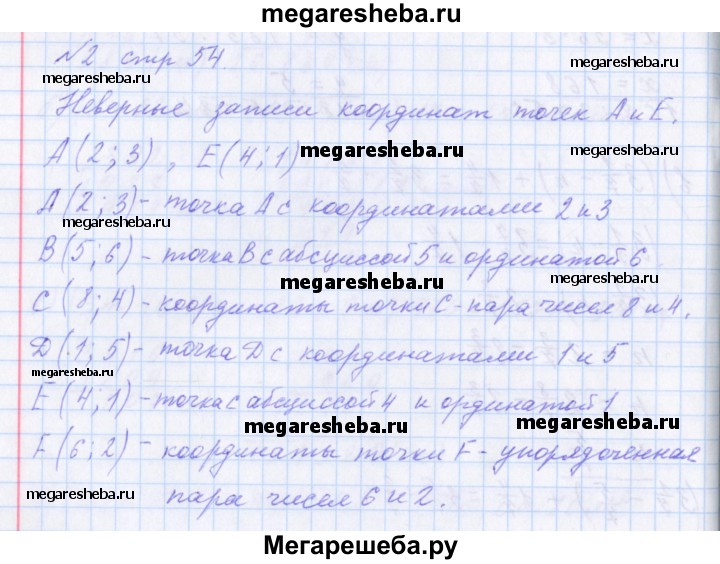 megaresheba.ru
№2 стр 54.
megaresheba.ru
Неверные записи координат точек А и Е.
А(2;3), Е(4;1) megaresheba.ru
А(2;3) - точка А с координатами 2 и 3
megaresheba.ru
В(5;6) - точка В с абсциссой 5 и ординатой 6
megaresheba.ru
С(8;4) - координаты точки С - пара чисел 8 и 4.
D(1;5) - точка D с координатами 1 и 5
megaresheba.ru
Е(4;1) - точка с абсциссой 4 и ординатой 1
megaresheba.ru megaresheba.ru
F(6;2) - координаты точки F - упорядоченная
megaresheba.ru пара чисел 6 и 2. megaresheba.ru
Мегарешеба.ру